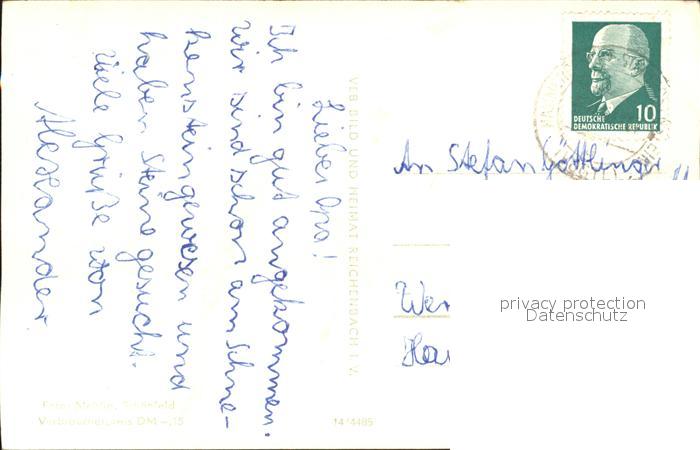 Lieber Opa!
Ich bin gut angekommen.
Wir sind schon am Schne-
kenstein gewesen und
haben Steine gesucht.
Viele Grüße von
Alexander
VEB BILD UND HEIMAT REICHENBACH I. V.
Verbraucherpreis DM -,15
14/4485
10
DEUTSCHE
DEMOKRATISCHE REPUBLIK
An Stefan
privacy protection
Datenschutz